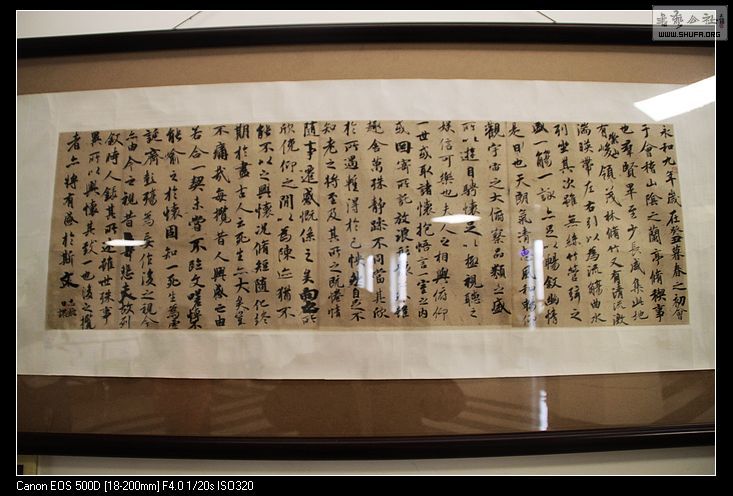 永和九年歲在癸丑暮春之初會
于會稽山陰之蘭亭脩稧事
也群賢畢至少長咸集此地
有峻領茂林脩竹又有清流激
湍暎帶左右引以為流觴曲水
列坐其次雖無絲竹管弦之
盛一觴一詠亦足以暢敘幽情
是日也天朗氣清風和暢
觀宇宙之大俯察品類之盛
所以遊目騁懷足以極視聽之
娛信可樂也夫人之相與俯仰
一世或取諸懷抱悟言一室之內
或因寄所託放浪形雖
趣舍萬殊靜躁不同當其欣
於所遇暫得於己快然自足不
知老之將至及其所之既惓情
隨事遷感慨係之矣向之所
欣俛仰之間以為陳迹猶不
能不以之興懷況脩短隨化終
期於盡古人云死生亦大矣豈
不痛哉每攬昔人興感之由
若合一契未嘗不臨文嗟悼不
能喻之於懷固知一死生為虛
誕齊彭殤為妄作後之視今
亦由今之視昔悲夫故列
敘時人錄其所述雖世殊事
異所以興懷其致一也後之攬
者亦將有感於斯文
WWW.SHUFA.ORG
Canon EOS 500D [18-200mm] F4.0 1/20s ISO320